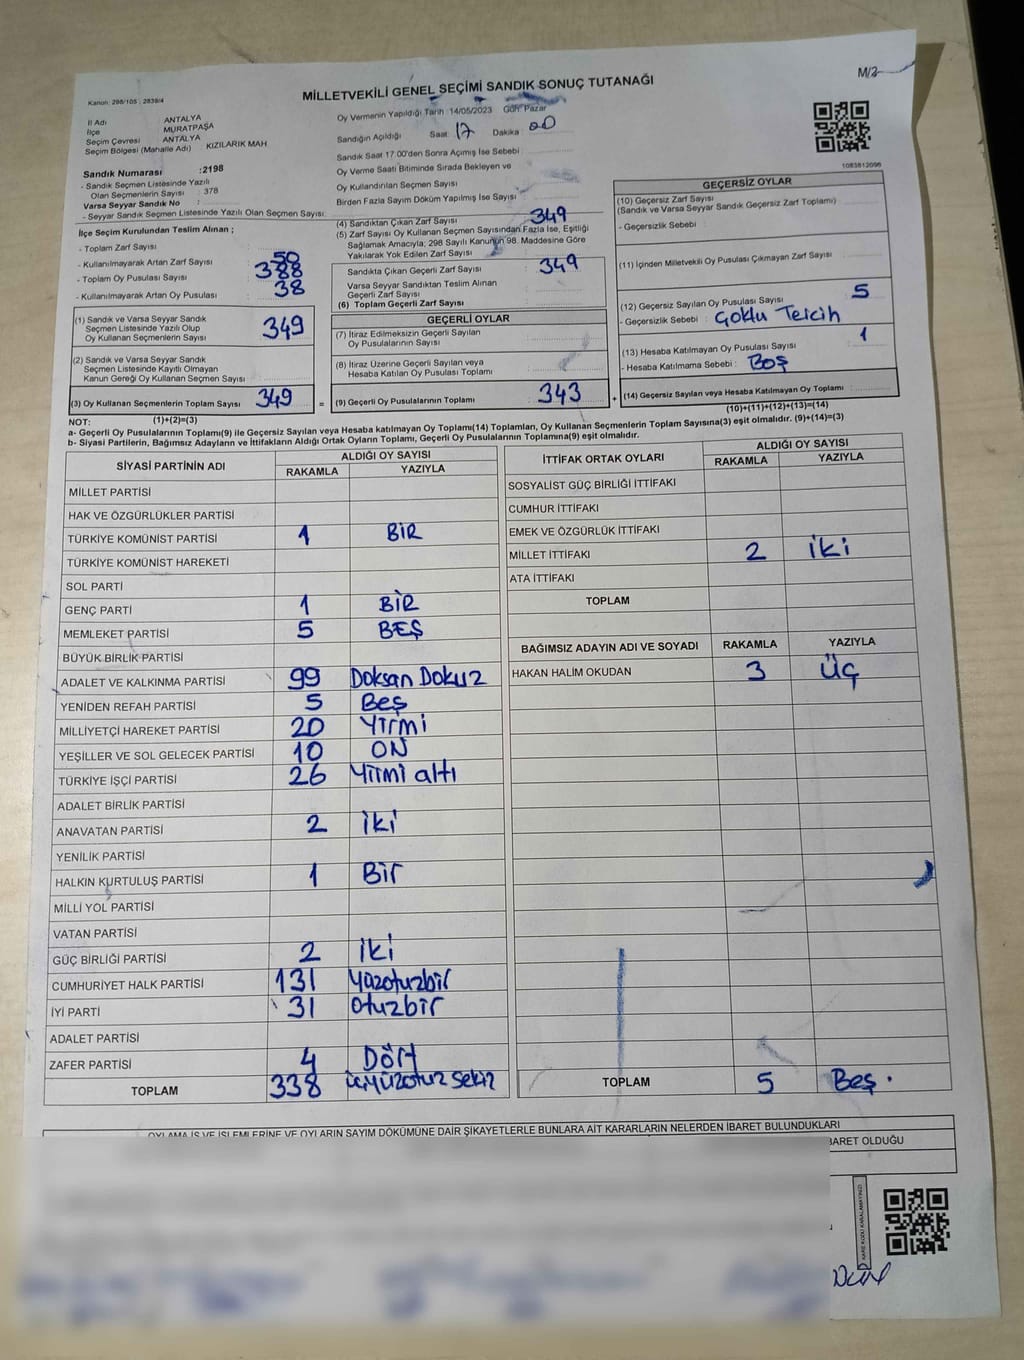 M/2
Kanun: 298/105 ; 2839/4
MİLLETVEKİLİ GENEL SEÇİMİ SANDIK SONUÇ TUTANAĞI
İl Adı ANTALYA
İlçe MURATPAŞA
Seçim Çevresi ANTALYA
Seçim Bölgesi (Mahalle Adı) KIZILARIK MAH
Sandık Numarası :2198
- Sandık Seçmen Listesinde Yazılı
Olan Seçmenlerin Sayısı : 378
Varsa Seyyar Sandık No :
- Seyyar Sandık Seçmen Listesinde Yazılı Olan Seçmen Sayısı:
Oy Vermenin Yapıldığı Tarih 14/05/2023 Gün: Pazar
Sandığın Açıldığı Saat 17 Dakika 00
Sandık Saat 17.00'den Sonra Açımış İse Sebebi
Oy Verme Saati Bitiminde Sırada Bekleyen ve
Oy Kullandırılan Seçmen Sayısı
Birden Fazla Sayım Döküm Yapılmış İse Sayısı
1083812096
İlçe Seçim Kurulundan Teslim Alınan ;
- Toplam Zarf Sayısı
- Kullanılmayarak Artan Zarf Sayısı 50
- Toplam Oy Pusulası Sayısı 388
- Kullanılmayarak Artan Oy Pusulası 38
(1) Sandık ve Varsa Seyyar Sandık
Seçmen Listesinde Yazılı Olup
Oy Kullanan Seçmenlerin Sayısı 349
(2) Sandık ve Varsa Seyyar Sandık
Seçmen Listesinde Kayıtlı Olmayan
Kanun Gereği Oy Kullanan Seçmen Sayısı
(3) Oy Kullanan Seçmenlerin Toplam Sayısı 349
=
(4) Sandıktan Çıkan Zarf Sayısı 349
(5) Zarf Sayısı Oy Kullanan Seçmen Sayısından Fazla İse, Eşitliği
Sağlamak Amacıyla; 298 Sayılı Kanunun 98. Maddesine Göre
Yakılarak Yok Edilen Zarf Sayısı
Sandıkta Çıkan Geçerli Zarf Sayısı 349
Varsa Seyyar Sandıktan Teslim Alınan
Geçerli Zarf Sayısı
(6) Toplam Geçerli Zarf Sayısı
GEÇERLİ OYLAR
(7) İtiraz Edilmeksizin Geçerli Sayılan
Oy Pusulalarının Sayısı
(8) İtiraz Üzerine Geçerli Sayılan veya
Hesaba Katılan Oy Pusulası Toplamı
(9) Geçerli Oy Pusulalarının Toplamı 343
+
GEÇERSİZ OYLAR
(10) Geçersiz Zarf Sayısı
(Sandık ve Varsa Seyyar Sandık Geçersiz Zarf Toplamı)
- Geçersizlik Sebebi
(11) İçinden Milletvekili Oy Pusulası Çıkmayan Zarf Sayısı
(12) Geçersiz Sayılan Oy Pusulası Sayısı 5
- Geçersizlik Sebebi : Çoklu Tercih
(13) Hesaba Katılmayan Oy Pusulası Sayısı 1
- Hesaba Katılmama Sebebi : Boş
(14) Geçersiz Sayılan veya Hesaba Katılmayan Oy Toplamı :
(10)+(11)+(12)+(13)=(14)
NOT: (1)+(2)=(3)
a- Geçerli Oy Pusulalarının Toplamı(9) ile Geçersiz Sayılan veya Hesaba katılmayan Oy Toplamı(14) Toplamları, Oy Kullanan Seçmenlerin Toplam Sayısına(3) eşit olmalıdır. (9)+(14)=(3)
b- Siyasi Partilerin, Bağımsız Adayların ve İttifakların Aldığı Ortak Oyların Toplamı, Geçerli Oy Pusulalarının Toplamına(9) eşit olmalıdır.
SİYASİ PARTİNİN ADI ALDIĞI OY SAYISI
RAKAMLA YAZIYLA
MİLLET PARTİSİ
HAK VE ÖZGÜRLÜKLER PARTİSİ
TÜRKİYE KOMÜNİST PARTİSİ 1 BİR
TÜRKİYE KOMÜNİST HAREKETİ
SOL PARTİ
GENÇ PARTİ 1 BİR
MEMLEKET PARTİSİ 5 BEŞ
BÜYÜK BİRLİK PARTİSİ
ADALET VE KALKINMA PARTİSİ 99 Doksan Dokuz
YENİDEN REFAH PARTİSİ 5 Beş
MİLLİYETÇİ HAREKET PARTİSİ 20 Yirmi
YEŞİLLER VE SOL GELECEK PARTİSİ 10 ON
TÜRKİYE İŞÇİ PARTİSİ 26 Yirmi altı
ADALET BİRLİK PARTİSİ
ANAVATAN PARTİSİ 2 İki
YENİLİK PARTİSİ
HALKIN KURTULUŞ PARTİSİ 1 Bir
MİLLİ YOL PARTİSİ
VATAN PARTİSİ
GÜÇ BİRLİĞİ PARTİSİ 2 İki
CUMHURİYET HALK PARTİSİ 131 Yüzotuzbir
İYİ PARTİ 31 Otuzbir
ADALET PARTİSİ
ZAFER PARTİSİ 4 Dört
TOPLAM 338 üçyüzotuz sekiz
İTTİFAK ORTAK OYLARI ALDIĞI OY SAYISI
RAKAMLA YAZIYLA
SOSYALİST GÜÇ BİRLİĞİ İTTİFAKI
CUMHUR İTTİFAKI
EMEK VE ÖZGÜRLÜK İTTİFAKI
MİLLET İTTİFAKI 2 İki
ATA İTTİFAKI
TOPLAM
BAĞIMSIZ ADAYIN ADI VE SOYADI RAKAMLA YAZIYLA
HAKAN HALİM OKUDAN 3 Üç
TOPLAM 5 Beş.
OYLAMA İŞ VE İŞLEMLERİNE VE OYLARIN SAYIM DÖKÜMÜNE DAİR ŞİKAYETLERLE BUNLARA AİT KARARLARIN NELERDEN İBARET BULUNDUKLARI
BARET OLDUĞU
KARE KODU KARALAMAYINIZ!